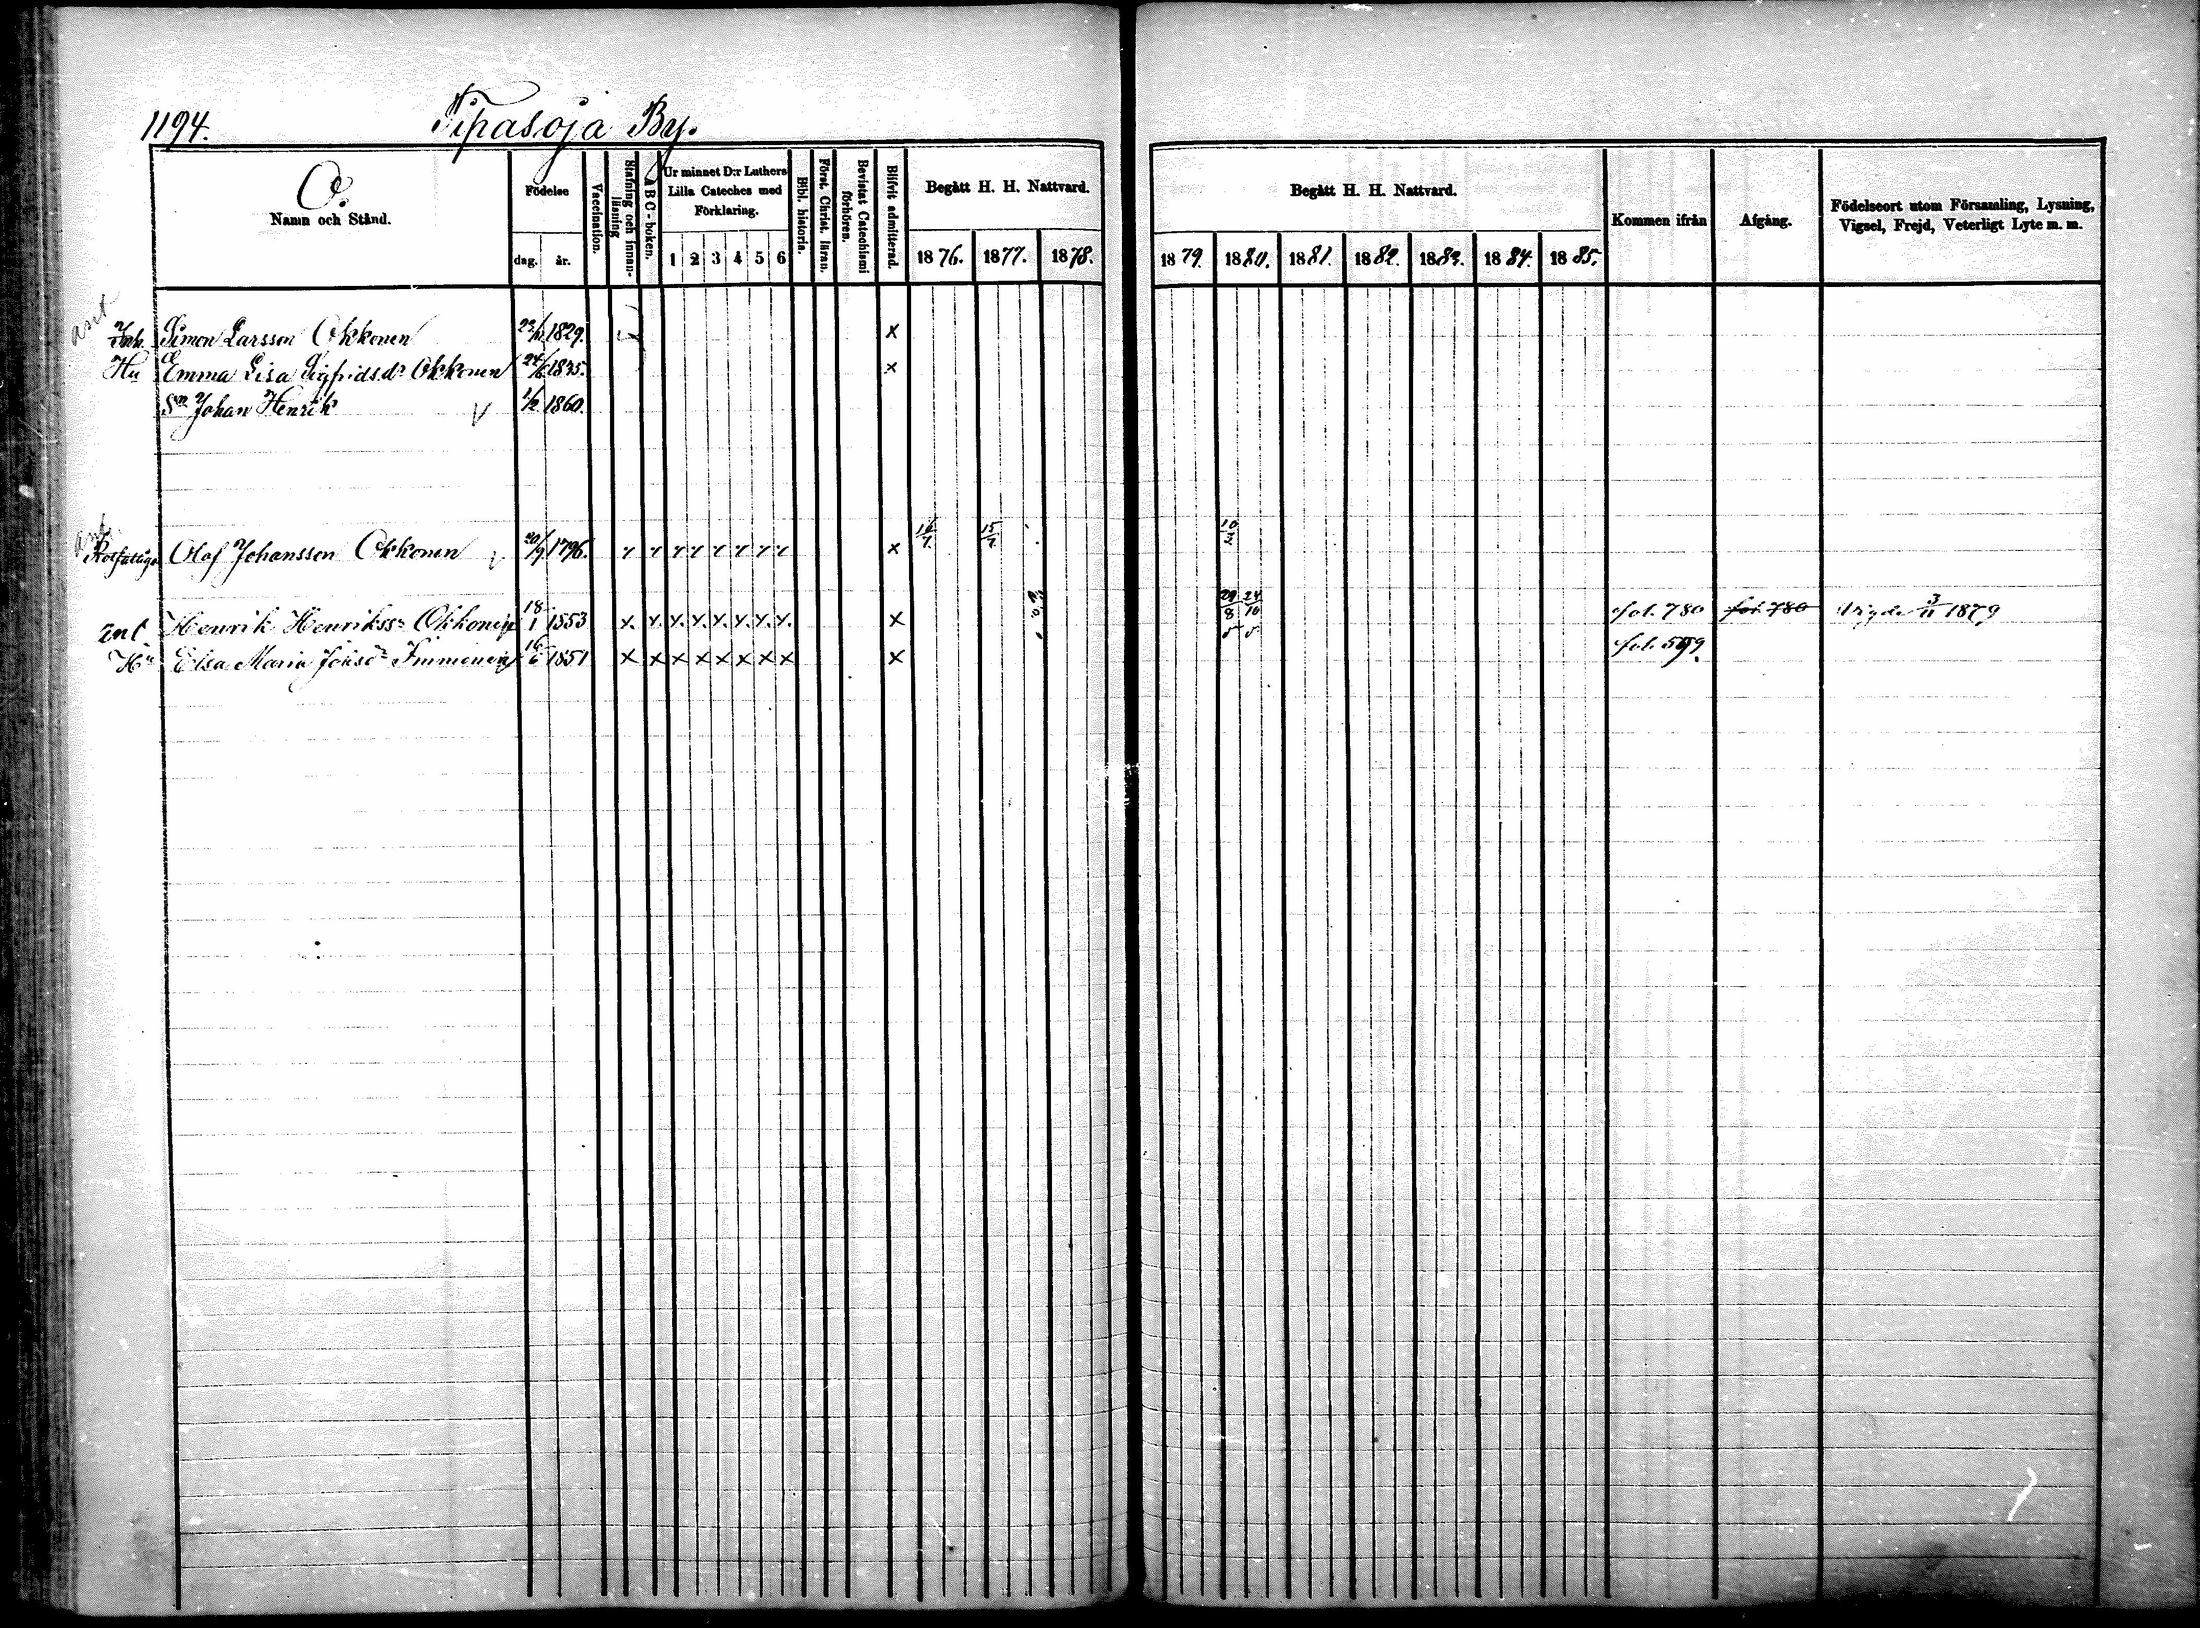 1194. Tipasoja By.
O.
Namn och Stånd.
Födelse
dag. år.
Vaccination.
Stafning och innan-läsning
A B C-boken.
Ur minnet D:r Luthers Lilla Cateches med Förklaring.
1 2 3 4 5 6
Bibl. historia.
Först. Christ. läran.
Bevistat Catechismi förhören.
Blifvit admitterad.
Begått H. H. Nattvard.
1876. 1877. 1878.
Begått H. H. Nattvard.
1879. 1880. 1881. 1882. 1883. 1884. 1885.
Kommen ifrån
Afgång.
Födelseort utom Församling, Lysning, Vigsel, Frejd, Veterligt Lyte m. m.
Inh. Simon Larsson Okkonen 1829. x
Hu Emma Lisa Sigfridsdr Okkonen 1835. x
Sn Johan Henrik 1/2 1860.
Olof Johansson Okkonen 20/9 1796. x 15/7 10/2
Inh. Henrik Henrikss: Okkonen 18/1 1853 x x x x x x x x x 29/8 24/10 fol. 780 fol. 780 Vigde 3/11 1879
Hu Elsa Maria 16/6 1851 x x x x x x x x x fol. 599.